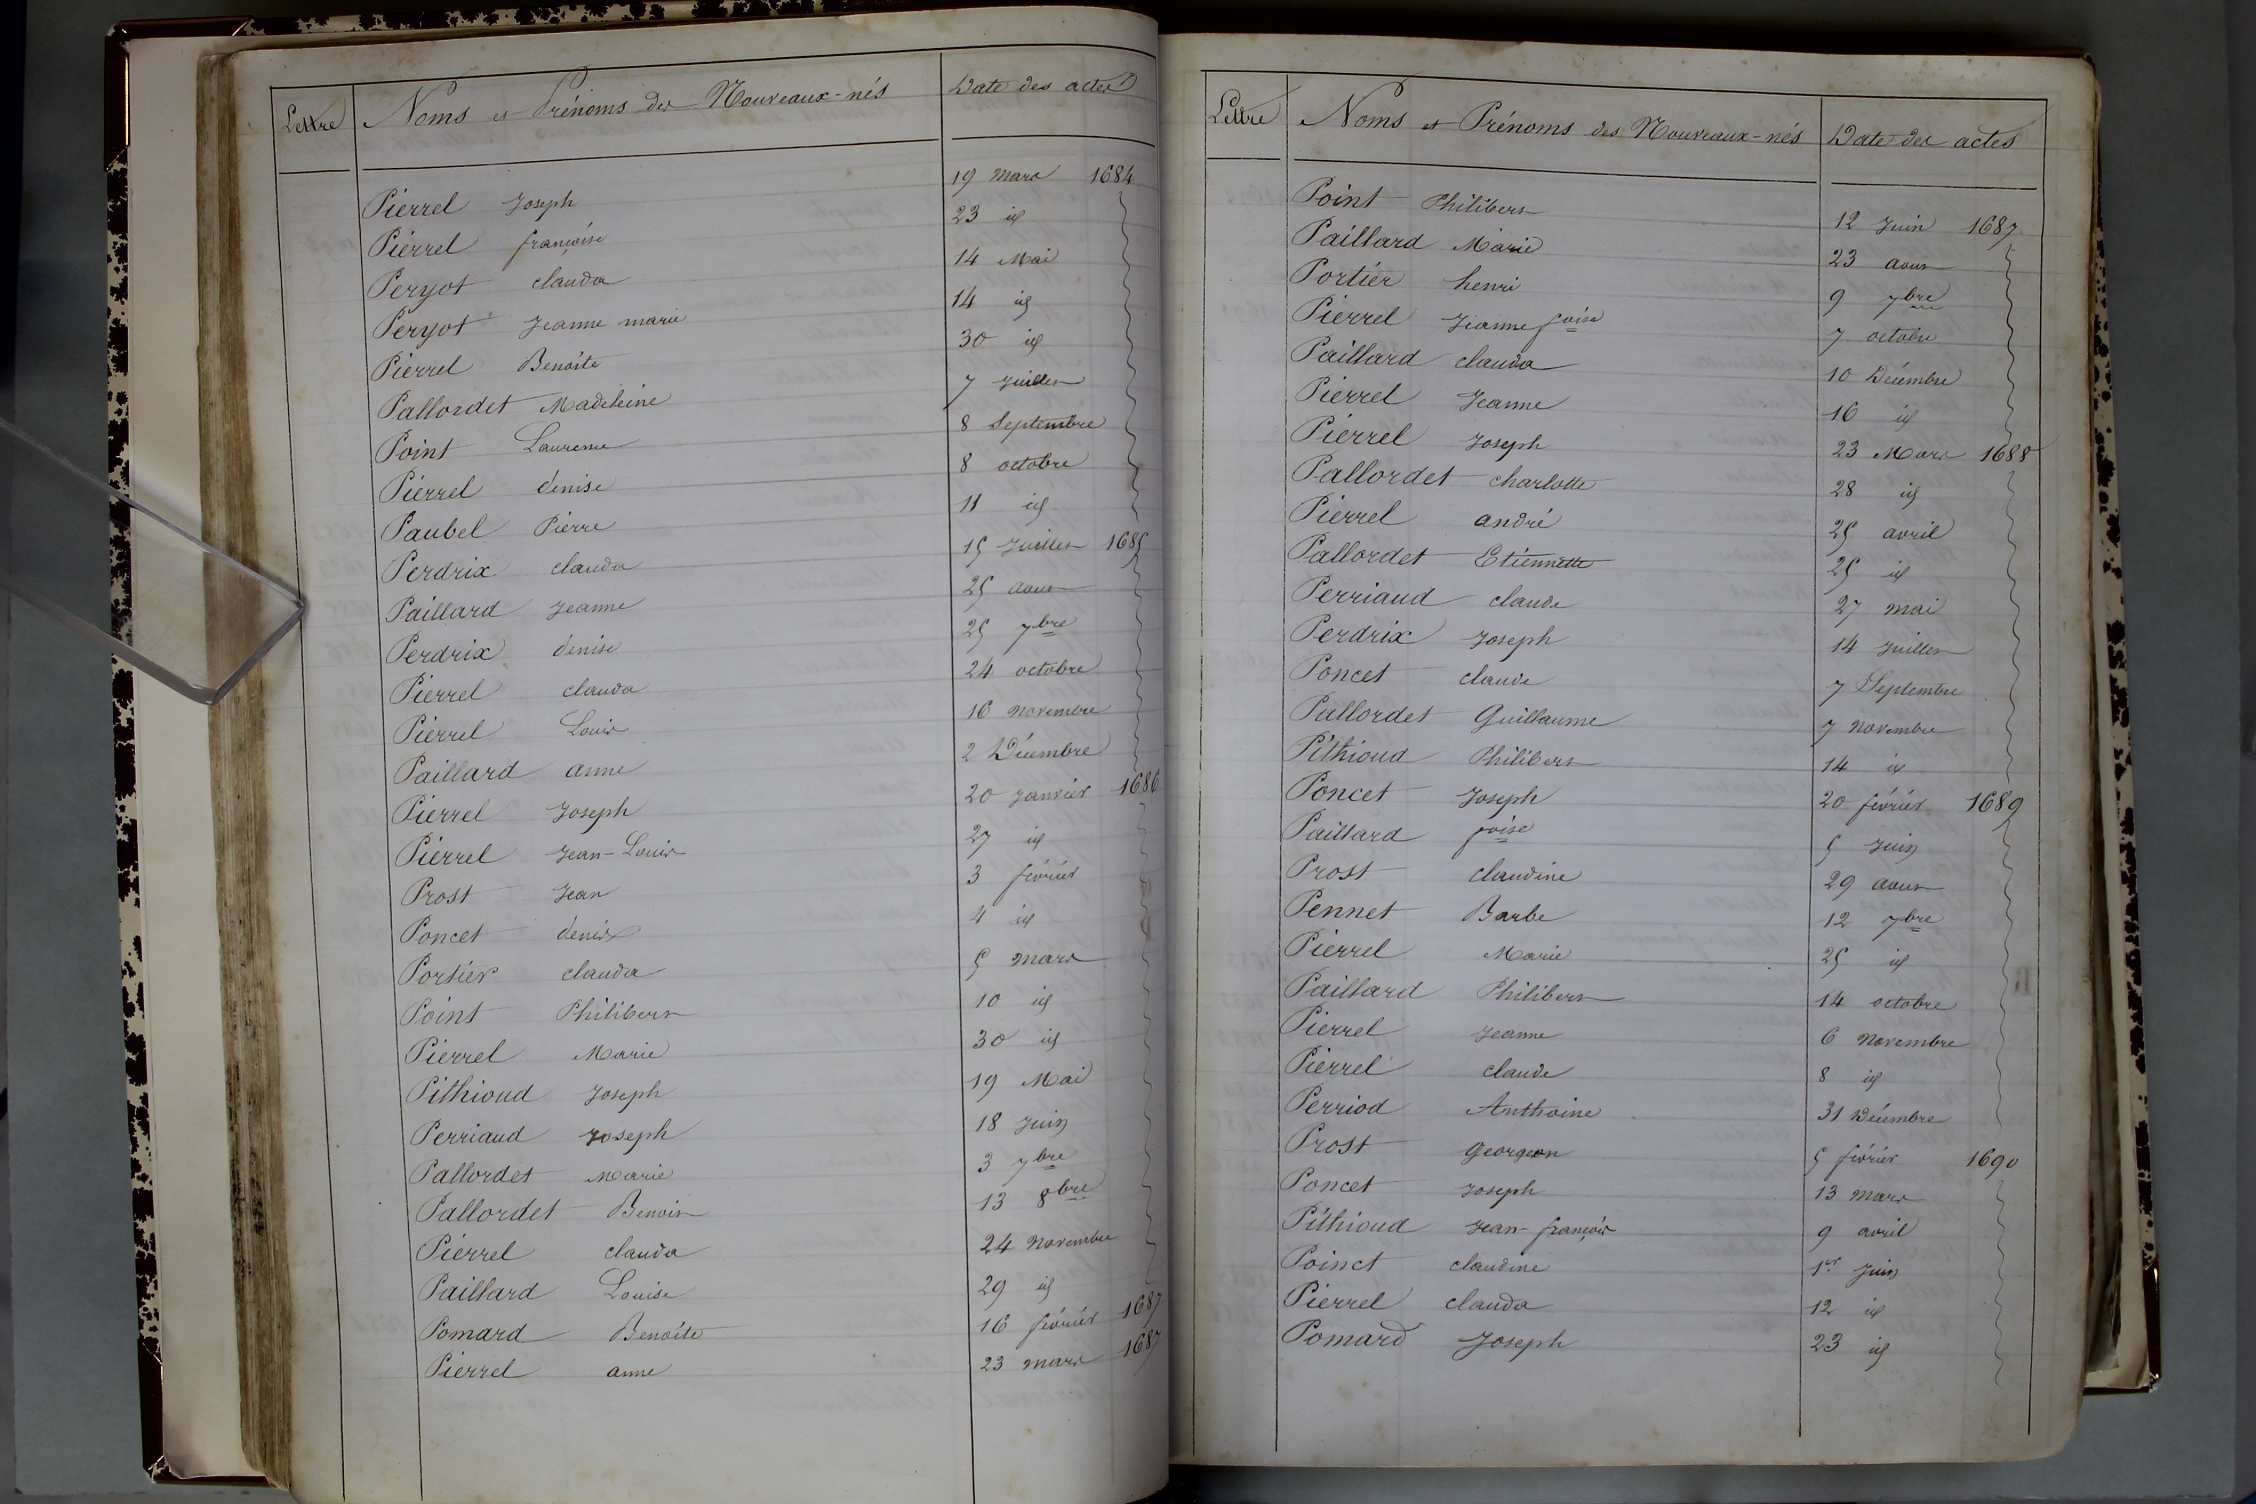 Lettre Noms et Prénoms des Nouveaux-nés Date des actes
Pierrel Joseph 19 Mars 1684
Pierrel françoise 23 id
Peryot clauda 14 Mai
Peryot Jeanne marie 14 id
Pierrel Benoîte 30 id
Pallordet Madeleine 7 Juillet
Point Laurence 8 Septembre
Pierrel denise 8 octobre
Paubel Pierre 11 id
Perdrix clauda 15 Juillet 1685
Paillard Jeanne 25 aout
Perdrix denise 25 7bre
Pierrel clauda 24 octobre
Pierrel Louis 16 novembre
Paillard anne 2 Décembre
Pierrel Joseph 20 Janvier 1686
Pierrel Jean-Louis 27 id
Prost Jean 3 février
Poncet denis 4 id
Portier clauda 5 mars
Point Philibert 10 id
Pierrel Marie 30 id
Pithioud Joseph 19 Mai
Perriaud Joseph 18 Juin
Pallordet Marie 3 7bre
Pallordet Benoit 13 8bre
Pierrel clauda 24 Novembre
Paillard Louise 29 id
Pomard Benoîte 16 février 1687
Pierrel anne 23 mars 1687
Lettre Noms et Prénoms des Nouveaux-nés Date des actes
Point Philibert 12 Juin 1687
Paillard Marie 23 aout
Portier henri 9 7bre
Pierrel Jeanne foise 7 octobre
Paillard clauda 10 Décembre
Pierrel Jeanne 16 id
Pierrel Joseph 23 Mars 1688
Pallordet charlotte 28 id
Pierrel andré 25 avril
Pallordet Etiennette 25 id
Perriaud claude 27 mai
Perdrix Joseph 14 Juillet
Poncet claude 7 Septembre
Pallordet Guillaume 7 Novembre
Pithioud Philibert 14 id
Poncet Joseph 20 février 1689
Paillard foise 5 Juin
Prost claudine 29 aout
Pennet Barbe 12 7bre
Pierrel Marie 25 id
Paillard Philibert 14 octobre
Pierrel Jeanne 6 Novembre
Pierrel claude 8 id
Perriod Anthoine 31 Décembre
Prost Georgeon 5 février 1690
Poncet Joseph 13 Mars
Pithioud Jean-françois 9 avril
Poinct claudine 1er Juin
Pierrel clauda 12 id
Pomard Joseph 23 id